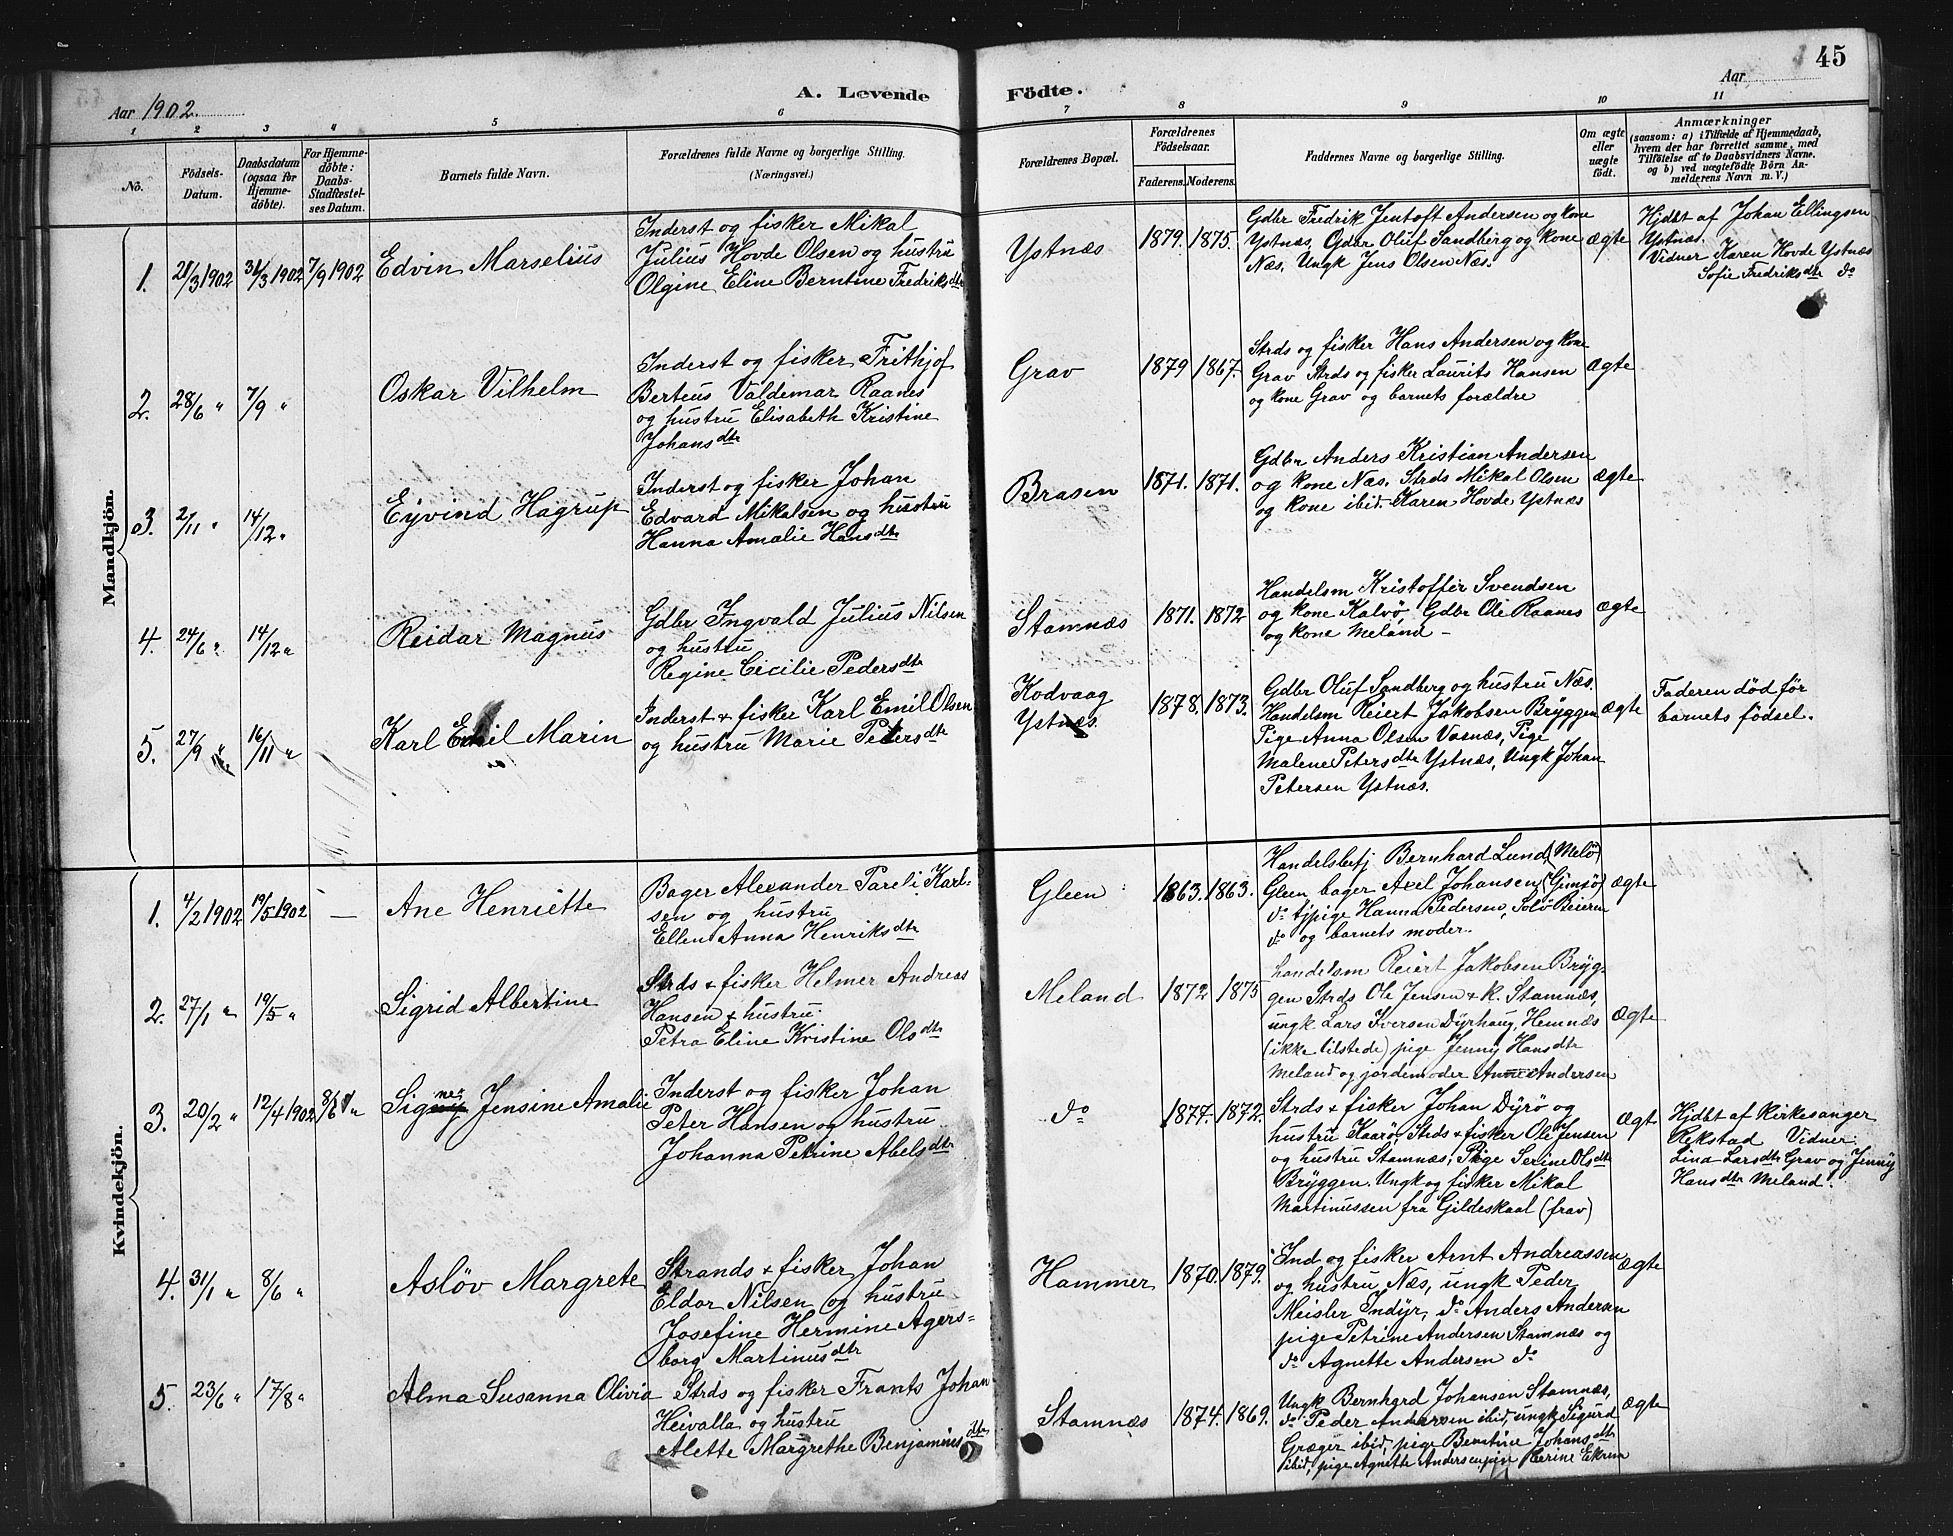 45
Aar 1902.
A. Levende Födte.
Aar
1 2 3 4 5 6 7 8 9 10 11
No.
Födsels-Datum.
Daabsdatum (ogsaa for Hjemme-döbte).
For Hjemme-döbte: Daabs-Stadfæstel-ses Datum.
Barnets fulde Navn.
Forældrenes fulde Navne og borgerlige Stilling.
(Næringsvei.)
Forældrenes Bopæl.
Forældrenes Födselsaar.
Faderens. Moderens.
Faddernes Navne og borgerlige Stilling.
Om ægte eller uægte födt.
Anmærkninger
(saasom: a) i Tilfælde af Hjemmedaab,
hvem der har forrettet samme, med
Tilföielse af to Daabsvidners Navne.
og b) ved uægtefödte Börn An-
melderens Navn m. V.)
Mandkjön.
1. 21/3 1902 31/3 1902 7/9 1902 Edvin Marselius
Inderst og fisker Mikal
Julius Hovde Olsen og hustru
Olgine Eline Berntine Fredriksdtr
Ystnæs 1879. 1875.
Gdbr Fredrik Jentoft Andersen og kone
Ystnæs, Gdbr Oluf Sandberg og kone
Næs. Ungk Jens Olsen Næs.
ægte
Hjdbt af Johan Ellingsen
Ystnæs.
Vidner Karen Hovde Ystnæs
Sofie Fredriksdtr do
2. 28/6 " 7/9 " Oskar Vilhelm
Inderst og fisker Frithjof
Berteus Valdemar Raanes
og hustru Elisabeth Kristine
Johansdtr
Grav 1879 1867.
Strds og fisker Hans Andersen og kone
Grav Strds og fisker Laurits Hansen
og kone Grav og barnets forældre
ægte
3. 2/11 " 14/12 " Eyvind Hagrup
Inderst og fisker Johan
Edvard Mikalsen og hustru
Hanna Amalie Hansdtr
Brasen 1871. 1871.
Gdbr Anders Kristian Andersen
og kone Næs. Strds Mikal Olsen
og kone ibid. Karen Hovde Ystnæs
ægte
4. 24/6 " 14/12 " Reidar Magnus
Gdbr Ingvald Julius Nilsen
og hustru
Regine Cecilie Pedersdtr
Stamnæs 1871. 1872
Handelsm Kristoffer Svendsen
og kone Kalvö, Gdbr Ole Raanes
og kone Meland -
ægte
5. 27/9 " 16/11 " Karl Emil Marin
Inderst & fisker Karl Emil Olsen
og hustru Marie Petersdtr
Kodvaag
Ystnæs. 1878. 1873.
Gdbr Oluf Sandberg og hustru Næs.
Handelsm Reiert Jakobsen Bryggen
Pige Anna Olsen Vasnæs, Pige
Malene Petersdtr Ystnæs, Ungk Johan
Petersen Ystnæs.
ægte
Faderen död för
barnets födsel.
Kvindekjön.
1. 4/2 1902 19/5 1902 — Ane Henriette
Bager Alexander Pareli Karl-
sen og hustru
Ellen Anna Henriksdtr
Gleen 1863. 1863.
Handelsbetj Bernhard Lund, (Melö)
Gleen bager Axel Johansen (Gimsö)
do tjpige Hanna Pedersen, Solö Beieren
do og barnets moder.
ægte
2. 27/1 " 19/5 " Sigrid Albertine
Strds & fisker Helmer Andreas
Hansen & hustru
Petra Eline Kristine Olsdtr
Meland 1872 1875
handelsm Reiert Jakobsen Bryg-
gen Strds Ole Jensen & k. Stamnæs,
ungk. Lars Iversen Dyrhaug, Hemnæs
(ikke tilstede) pige Jenny Hansdtr
Meland og jordemoder Anne Andersen
ægte
3. 20/2 " 12/4 1902 8/6 " Signe Jensine Amalie
Inderst og fisker Johan
Peter Hansen og hustru
Johanna Petrine Abelsdtr
do 1874. 1872.
Strds & fisker Johan Dyrö og
hustru Kaarö, Strds & fisker Ole Jensen
og hustru Stamnæs, Pige Serine Olsdtr
Bryggen. Ungk og fisker Mikal
Martinussen fra Gildeskaal (frav)
ægt
Hjdbt af kirkesanger
Rekstad Vidner
Lina Larsdtr Grav og Jenny
Hansdtr Meland.
4. 31/1 " 8/6 " Aslöv Margrete
Strands & fisker Johan
Eldor Nilsen og hustru
Josefine Hermine Agers-
borg Martinusdtr
Hammer 1870. 1879.
Ind og fisker Arnt Andreassen
og hustru Næs, ungk Peder
Meisler Indyr, do Anders Andersen
pige Petrine Andersen Stamnæs og
do Agnette Andersen do
ægte
5. 23/6 " 17/8 " Alma Susanna Olivia
Strds og fisker Frants Johan
Heivalla og hustru
Alette Margrethe Benjaminsdtr
Stamnæs 1874. 1869.
Ungk Bernhard Johansen Stamnæs,
do Peder Andersen ibid, ungk Sigurd
Græger ibid, pige Berntine Johansdtr
ibid, pige Agnette Andersen, pige Ekrem
ægte